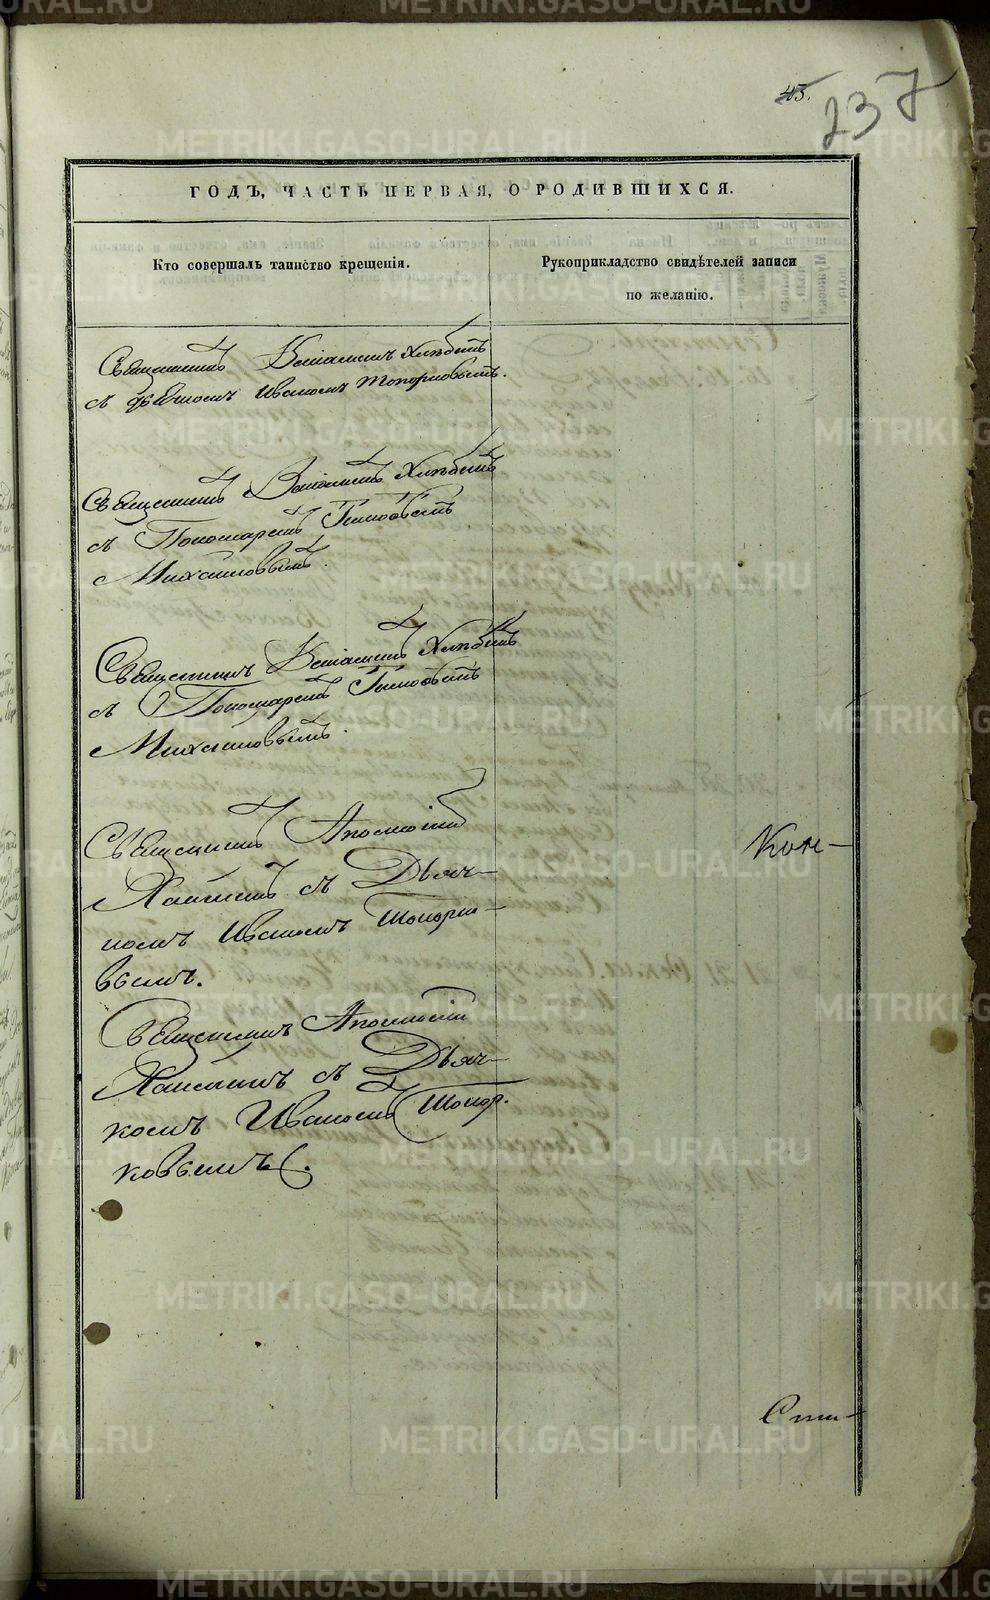 43.
237
ГОДЪ, ЧАСТЬ ПЕРВАЯ, О РОДИВШИХСЯ.
Кто совершалъ таинство крещенія.
Рукоприкладство свидѣтелей записи
по желанію.
Священникъ Веніаминъ Хлѣбинъ
съ дьякомъ Иваномъ Топорковымъ.
Священникъ Веніаминъ Хлѣбинъ
съ Пономаремъ
Михайловымъ.
Священникъ Веніаминъ Хлѣбинъ
съ Пономаремъ
Михайловымъ.
Священникъ Аполлоній
съ Дьяч-
комъ Иваномъ Топорко-
вымъ.
Священникъ Аполлоній
съ Дьяч-
комъ Иваномъ Топор-
ковымъ.
METRIKI.GASO-URAL.RU